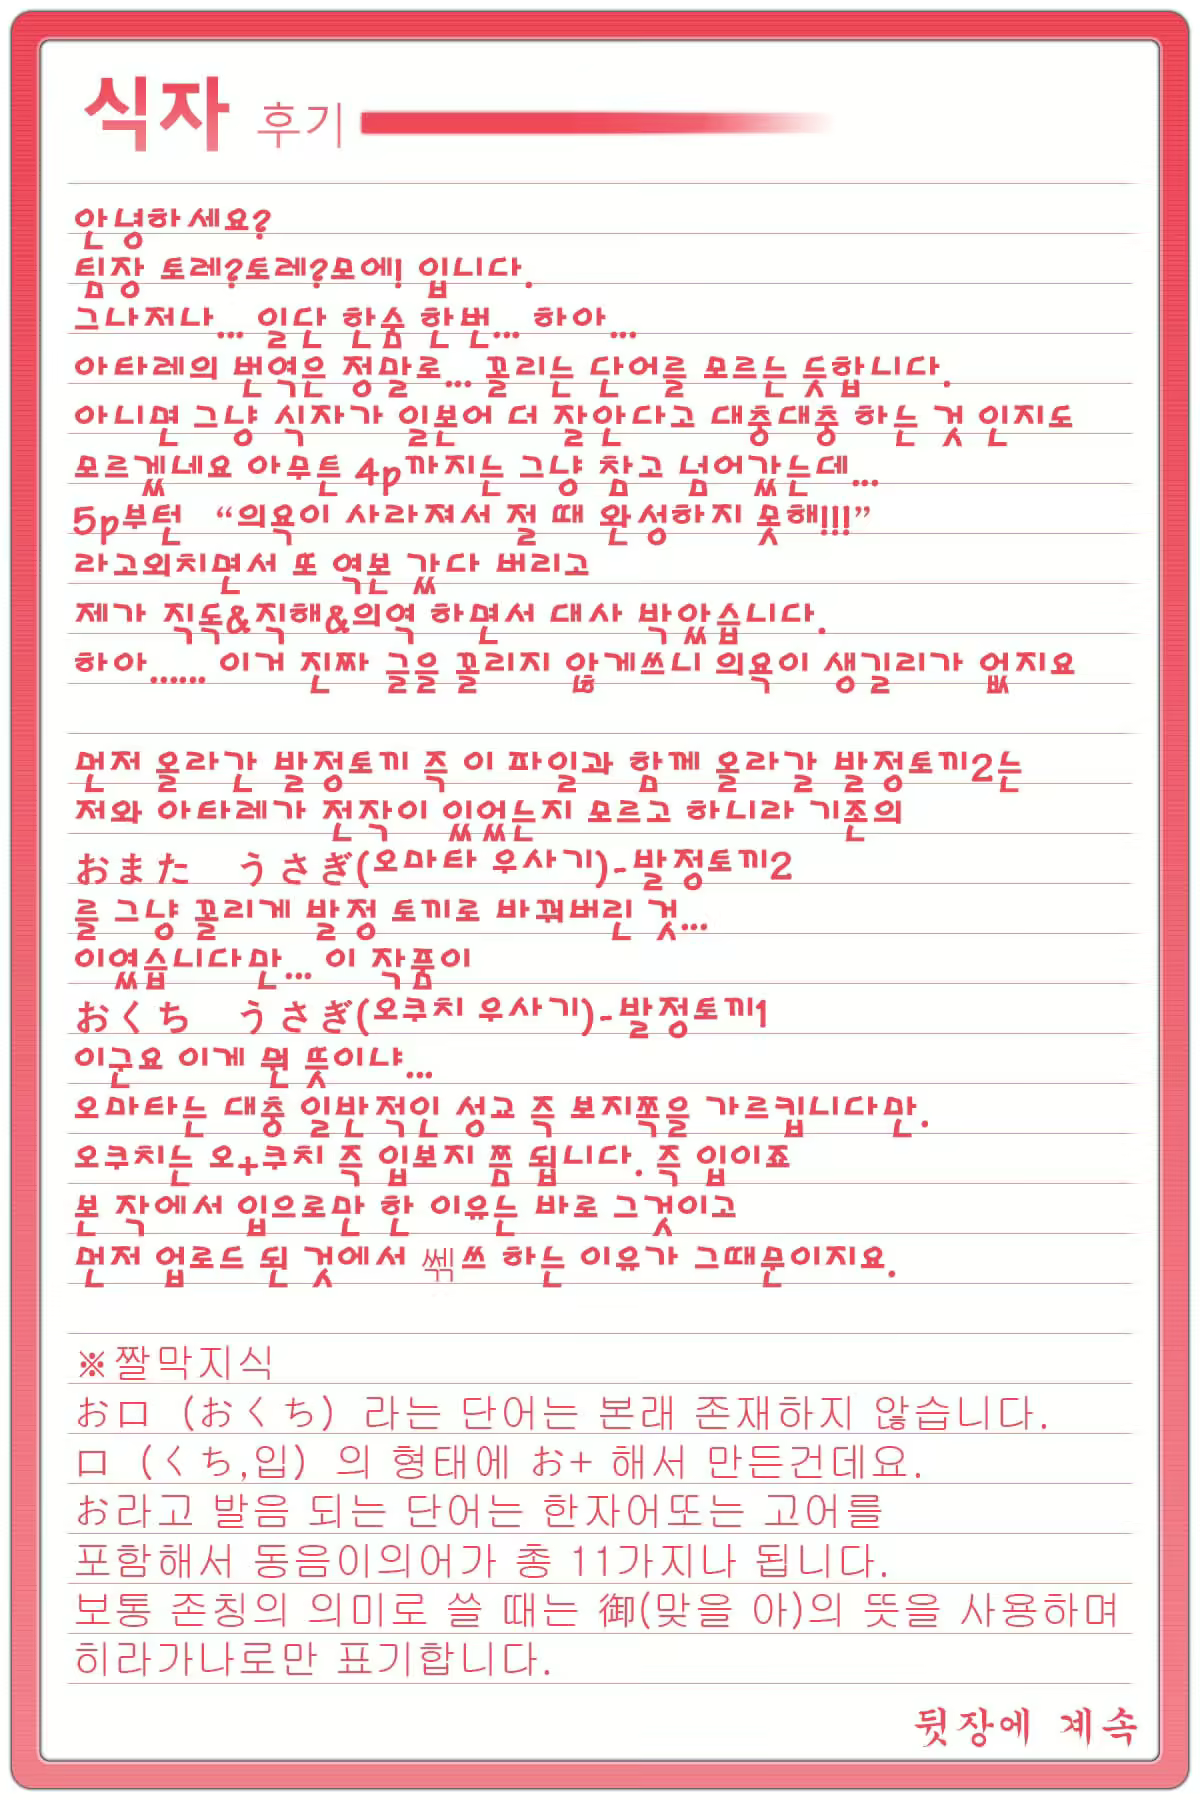 식자 후기
안녕하세요?
팀장 토레?토레?모에! 입니다.
그나저나... 일단 한숨 한번... 하아...
아타레의 번역은 정말로... 꼴리는 단어를 모르는 듯합니다.
아니면 그냥 식자가 일본어 더 잘안다고 대충대충 하는 것 인지도
모르겠네요 아무튼 4p까지는 그냥 참고 넘어갔는데...
5p부턴 “의욕이 사라져서 절 때 완성하지 못해!!!”
라고외치면서 또 역본 갔다 버리고
제가 직독&직해&의역 하면서 대사 박았습니다.
하아...... 이거 진짜 글을 꼴리지 않게쓰니 의욕이 생길리가 없지요
먼저 올라간 발정토끼 즉 이 파일과 함께 올라갈 발정토끼2는
저와 아타레가 전작이 있었는지 모르고 하니라 기존의
おまた うさぎ(오마타 우사기)-발정토끼2
를 그냥 꼴리게 발정 토끼로 바꿔버린 것...
이였습니다만... 이 작품이
おくち うさぎ(오쿠치 우사기)-발정토끼1
이군요 이게 뭔 뜻이냐...
오마타는 대충 일반적인 성교 즉 보지쪽을 가르킵니다만.
오쿠치는 오+쿠치 즉 입보지 쯤 됩니다. 즉 입이죠
본 작에서 입으로만 한 이유는 바로 그것이고
먼저 업로드 된 것에서 쎆쓰 하는 이유가 그때문이지요.
※짤막지식
お口 (おくち) 라는 단어는 본래 존재하지 않습니다.
口 (くち,입) 의 형태에 お+ 해서 만든건데요.
お라고 발음 되는 단어는 한자어또는 고어를
포함해서 동음이의어가 총 11가지나 됩니다.
보통 존칭의 의미로 쓸 때는 御(맞을 아)의 뜻을 사용하며
히라가나로만 표기합니다.
뒷장에 계속